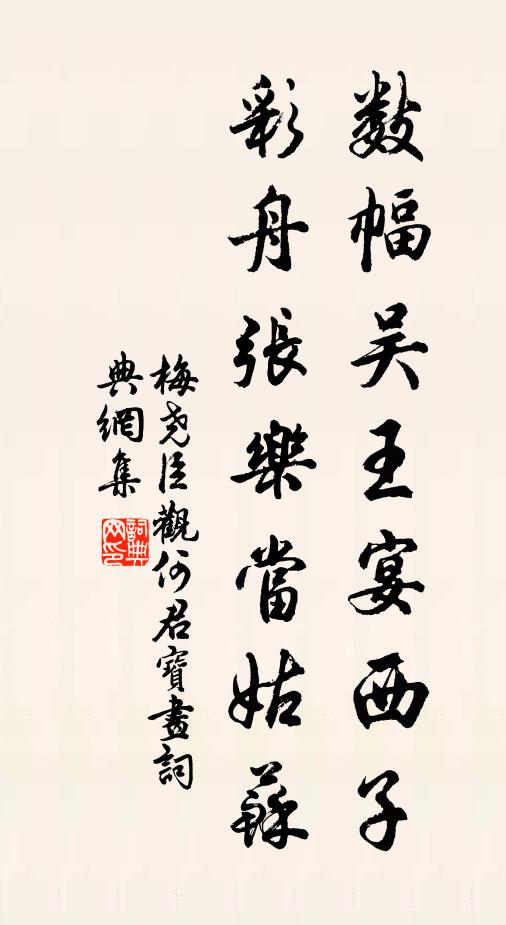 数幅吴王宴西子
彩舟張樂當姑蘇
梅尧臣觀何君寶畫詞
典網集
詞典网印